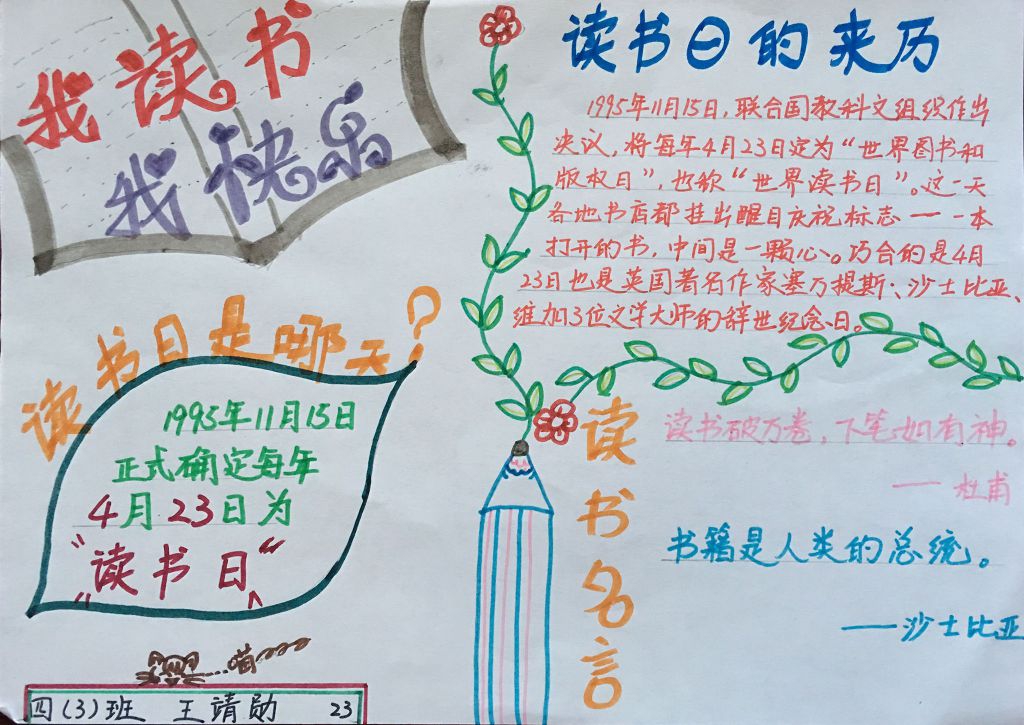 我读书
我快乐
读书日的来历
1995年11月15日,联合国教科文组织作出
决议,将每年4月23日定为“世界图书和
版权日”,也称“世界读书日”。这一天
各地书店都挂出醒目庆祝标志——一本
打开的书,中间是一颗心。巧合的是4月
23日也是英国著名作家塞万提斯、沙士比亚、
维加3位文学大师的辞世纪念日。
读书日是哪天?
1995年11月15日
正式确定每年
4月23日为
“读书日”
读书名言
读书破万卷,下笔如有神。
——杜甫
书籍是人类的总统。
——沙士比亚
喵
四(3)班 王靖勋 23